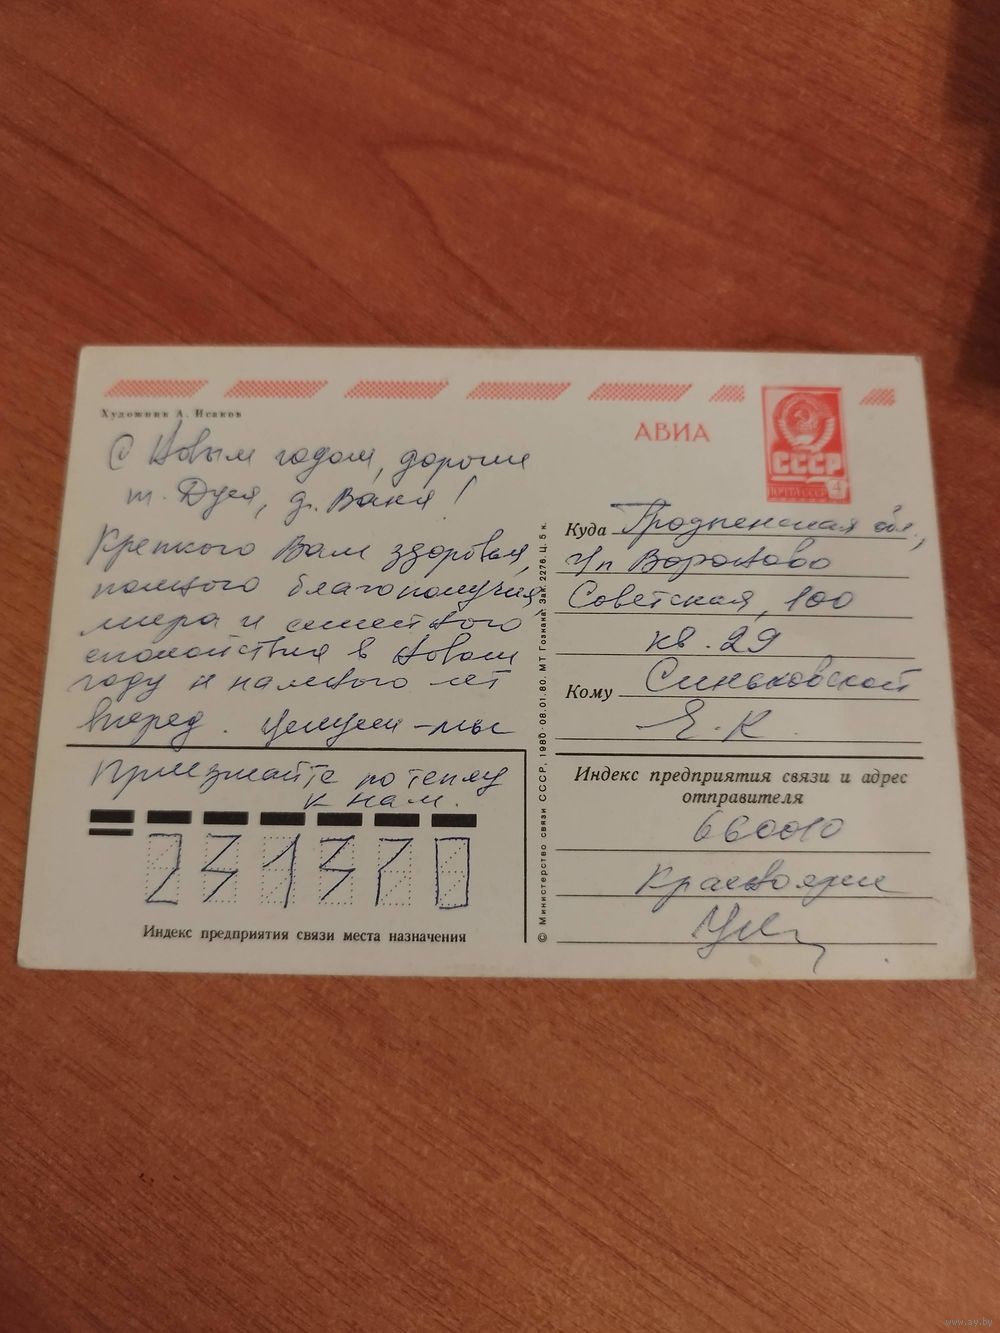 Художник А. Исаков
АВИА
СССР
ПОЧТА СССР
4
С Новым годом, дорогие
т. Дуся, д. Ваня!
Крепкого Вам здоровья,
полного благополучия,
мира и семейного
спокойствия в Новом
году и на много лет
вперед. Целуем - мы
Приезжайте по теплу
к нам.
231310
Индекс предприятия связи места назначения
© Министерство связи СССР, 1980. 08.01.80. МТ Гознака. Зак. 2276. Ц. 5 к.
Куда Гродненская обл.,
г/п Вороново
Советская, 100
кв. 29
Кому Синьковской
Е. К.
Индекс предприятия связи и адрес
отправителя
660010
Красноярск
www.ay.by